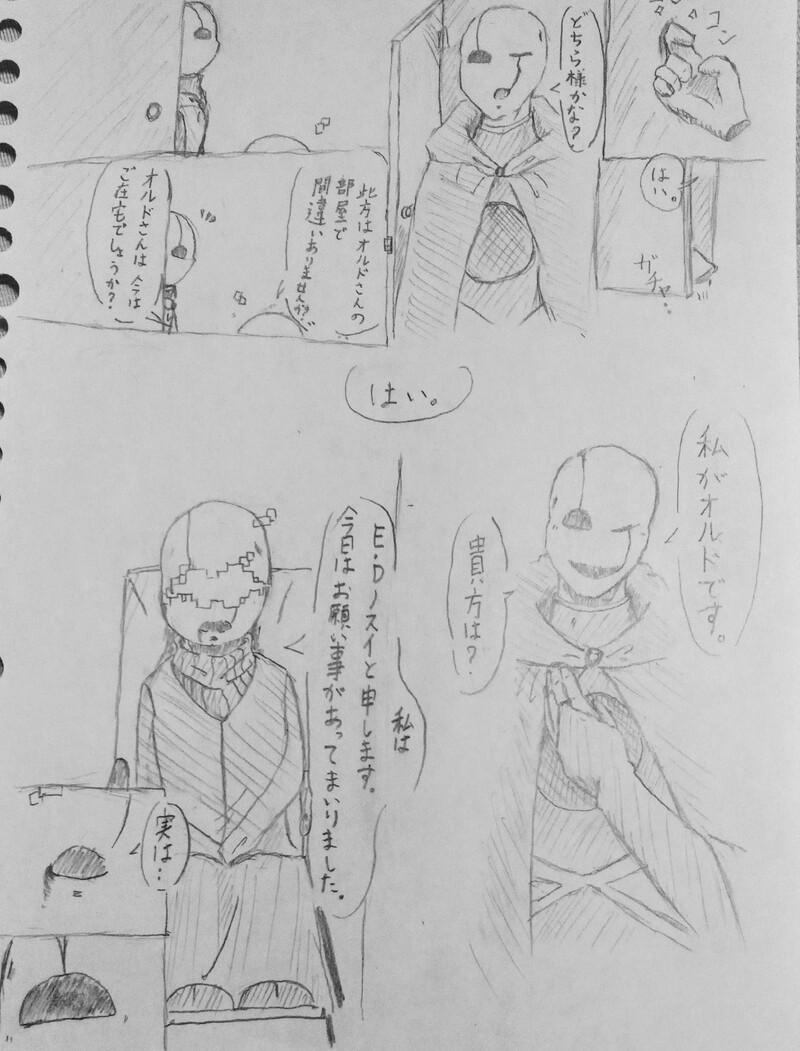 コン
コン
はい。
ガチャ…
どちら様かな？
此方はオルドさんの
部屋で
間違いありませんか？
オルドさんは今は
ご在宅でしょうか？
はい。
私がオルドです。
貴方は？
私は
E.Dノスイと申します。
今日はお願い事があってまいりました。
実は…